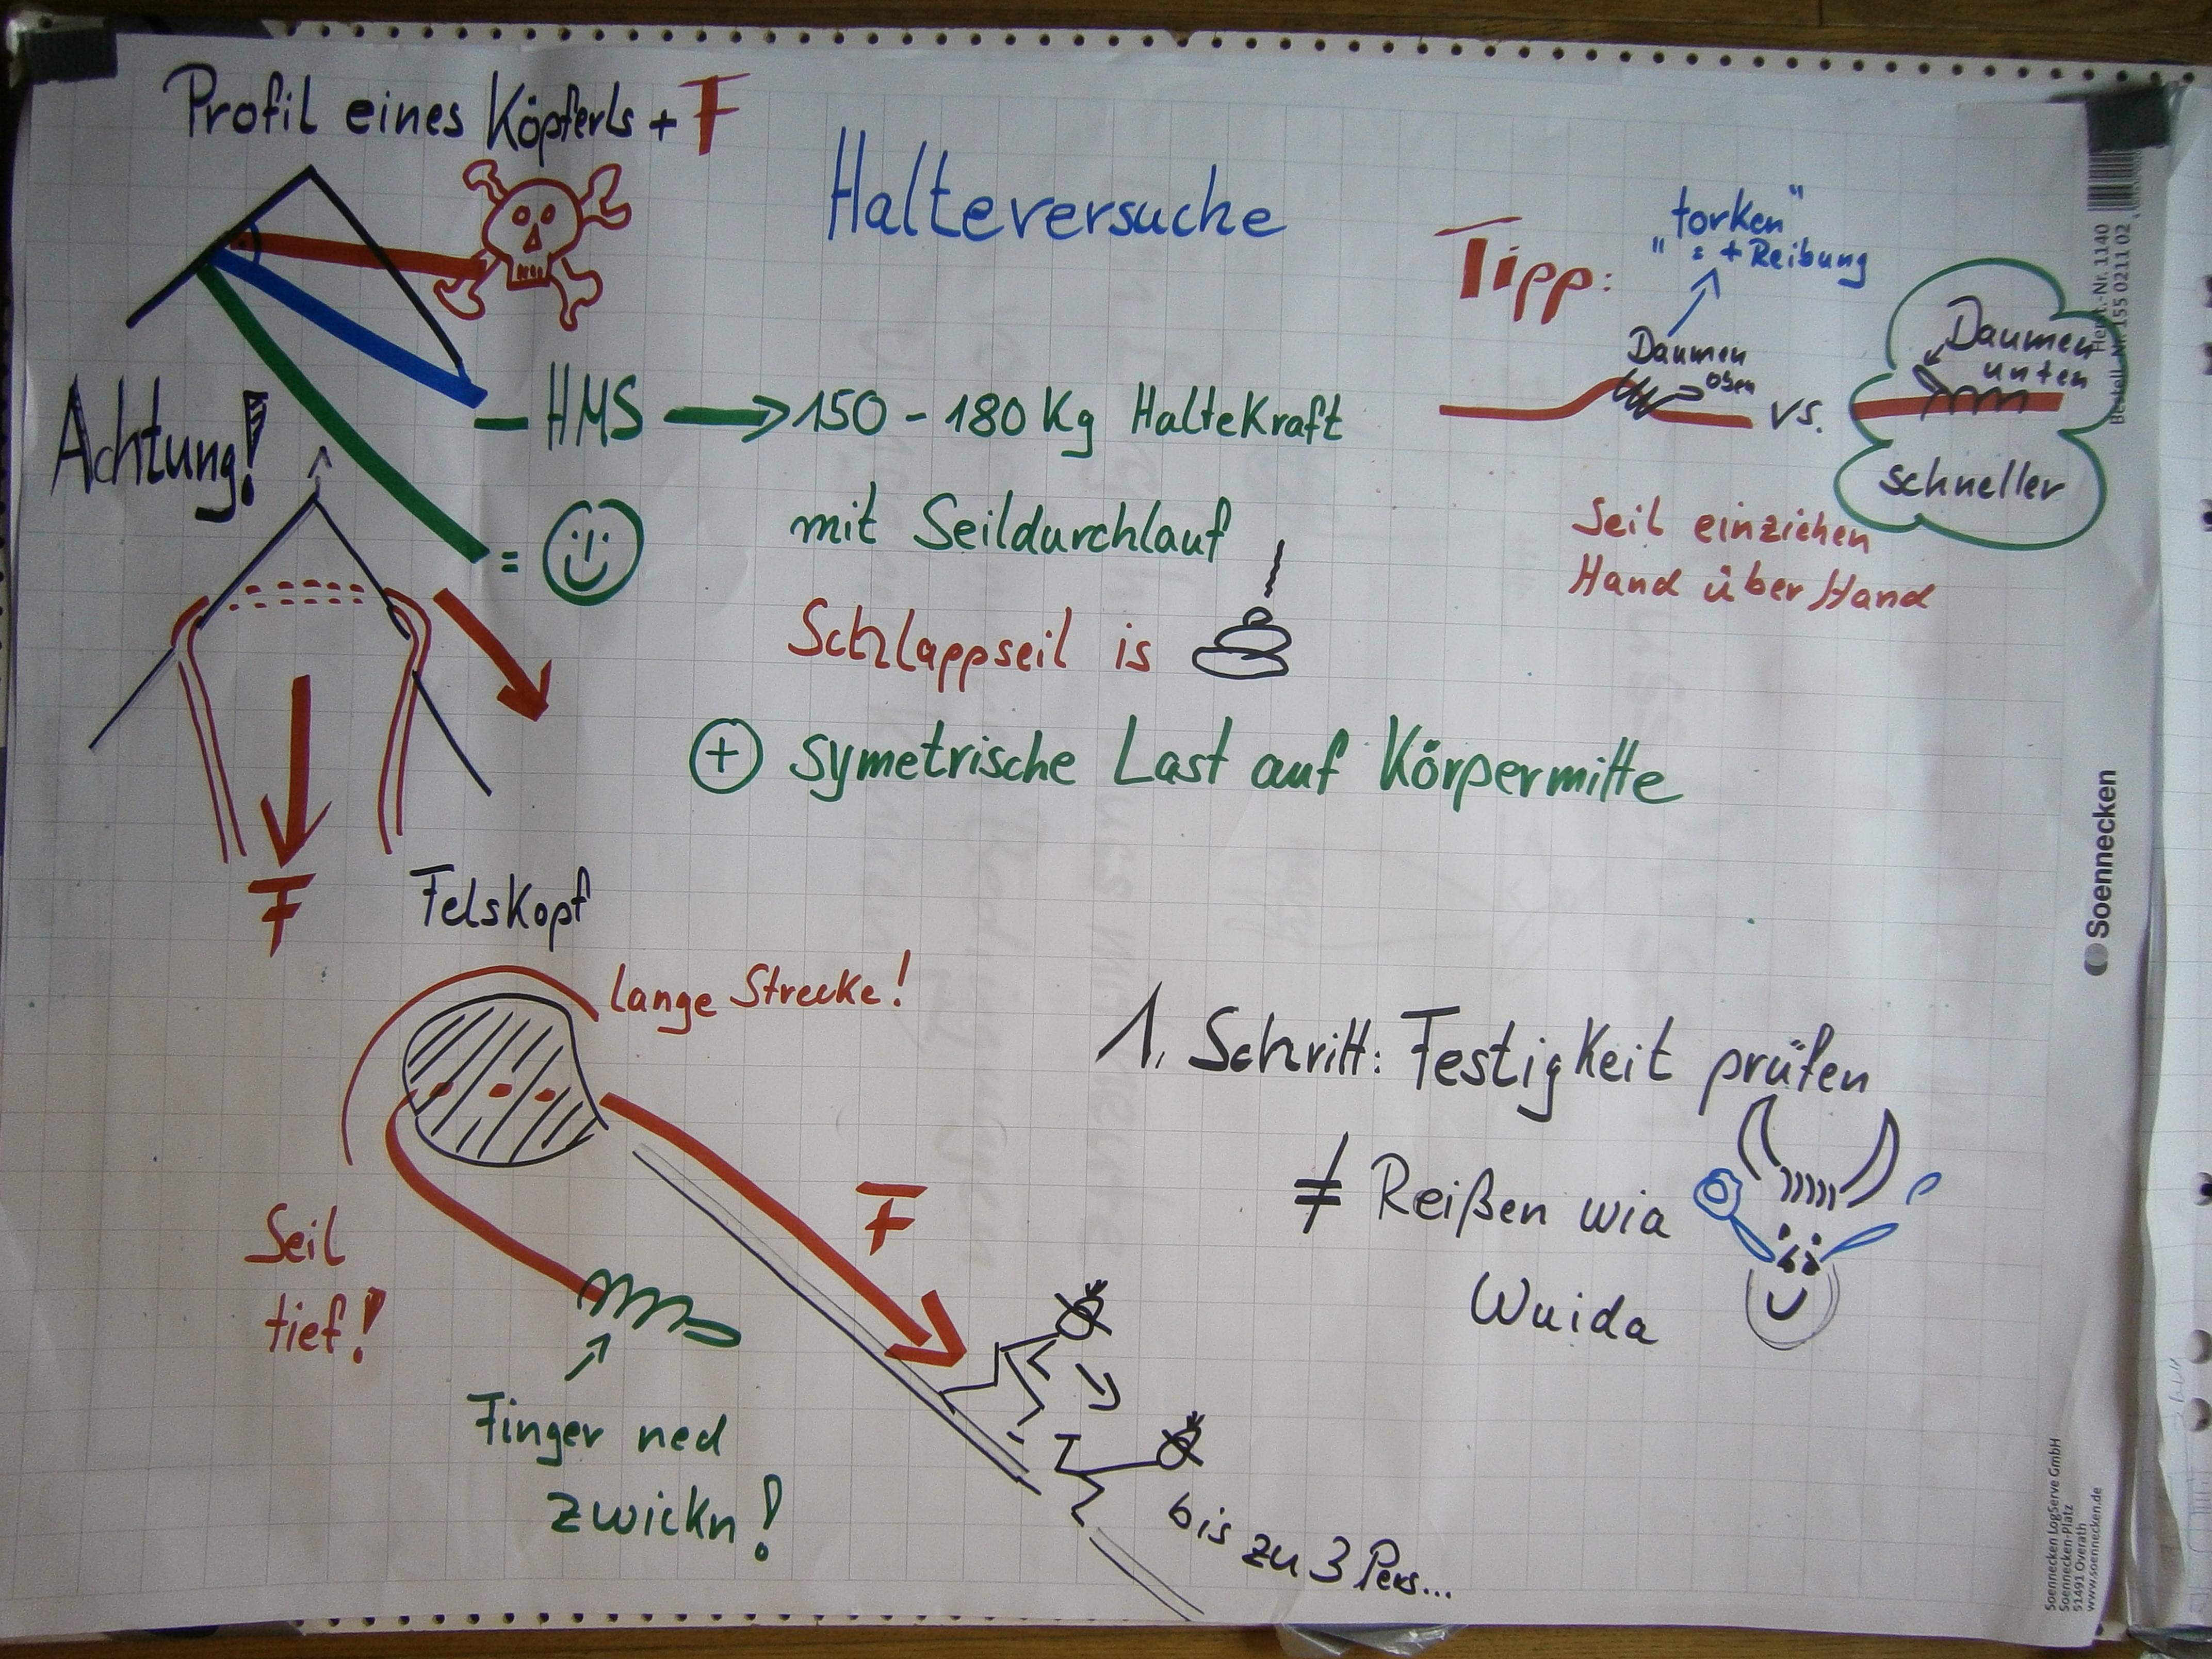 Profil eines Köpferls + F
Halteversuche
Tipp:
"torken"
" = + Reibung
Daumen
oben
vs.
Daumen
unten
schneller
Seil einziehen
Hand über Hand
Achtung!
- HMS → 150 - 180 Kg Haltekraft
= 
mit Seildurchlauf
Schlappseil is
+ symetrische Last auf Körpermitte
F
Felskopf
lange Strecke!
1. Schritt: Festigkeit prüfen
≠ Reißen wia
Wuida
F
Seil
tief!
Finger ned
zwickn!
bis zu 3 Pers...
Soennecken
Soennecken LogServe GmbH
Soennecken-Platz
51491 Overath
www.soennecken.de
.-Nr. 1140
155 0211 02